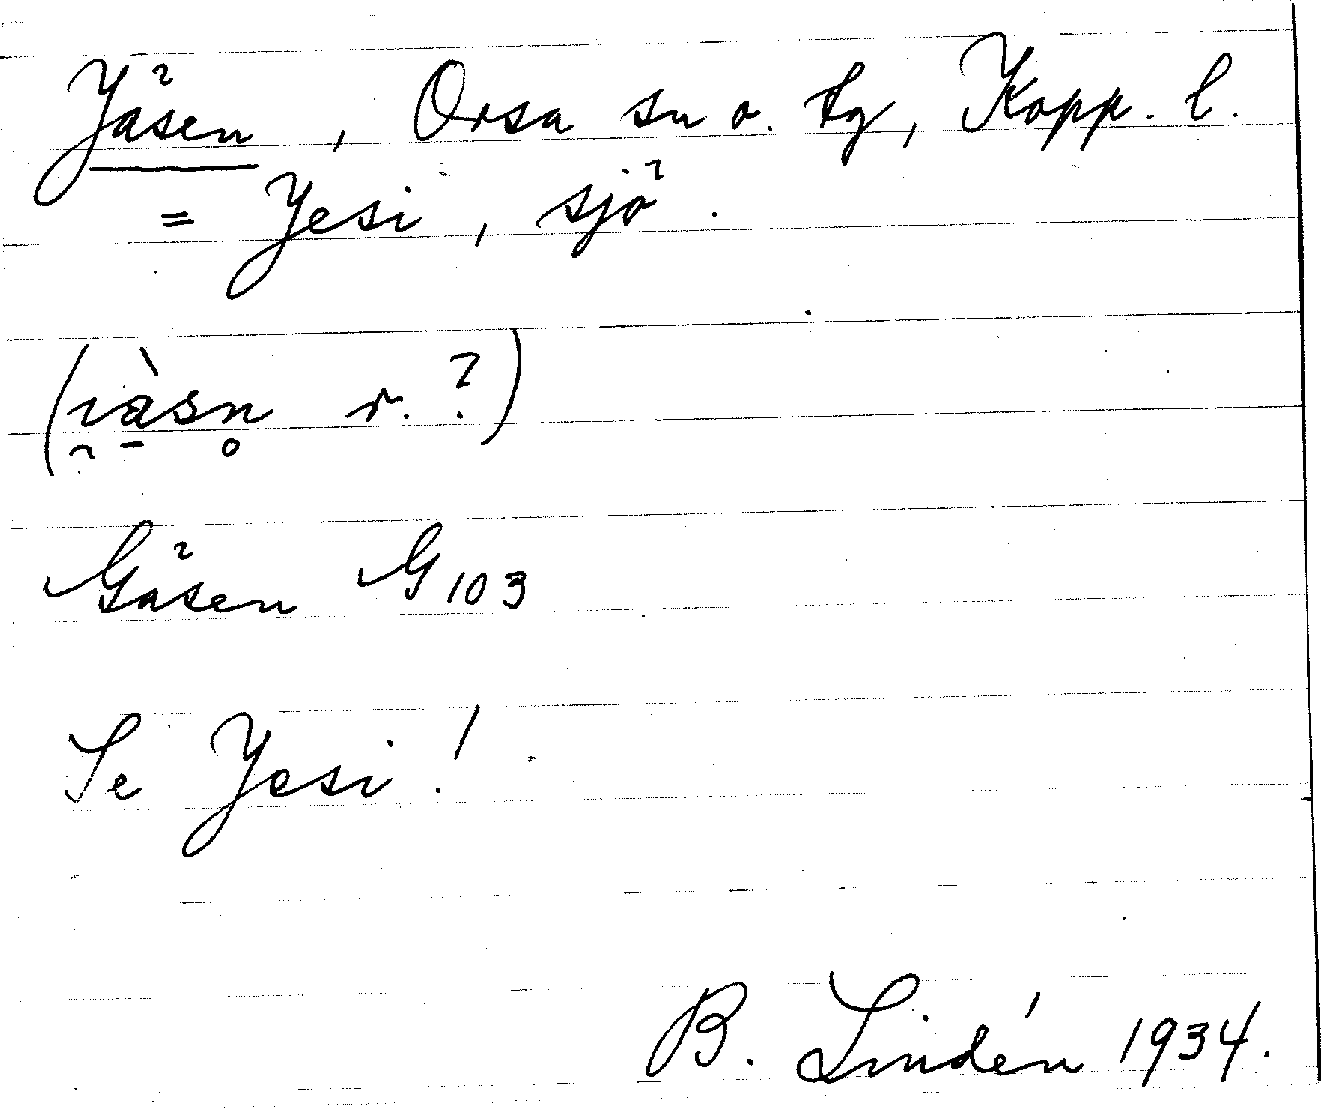 Jäsen, Orsa sn o. tg, Kopp. l.
= Jesi, sjö.
(i̯à̱sn̥ r.?)
Gäsen G103
Se Jesi!
B. Lindén 1934.